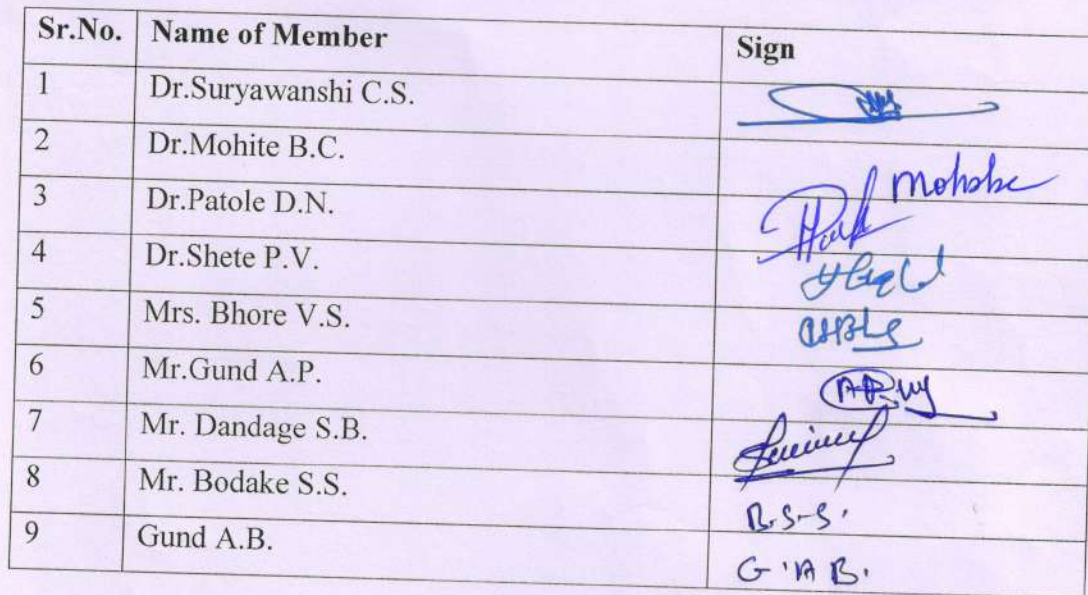 Sr.No. Name of Member Sign
1 Dr.Suryawanshi C.S.
2 Dr.Mohite B.C.
3 Dr.Patole D.N.
4 Dr.Shete P.V.
5 Mrs. Bhore V.S.
6 Mr.Gund A.P.
7 Mr. Dandage S.B.
8 Mr. Bodake S.S. B.S.S.
9 Gund A.B. G.A.B.